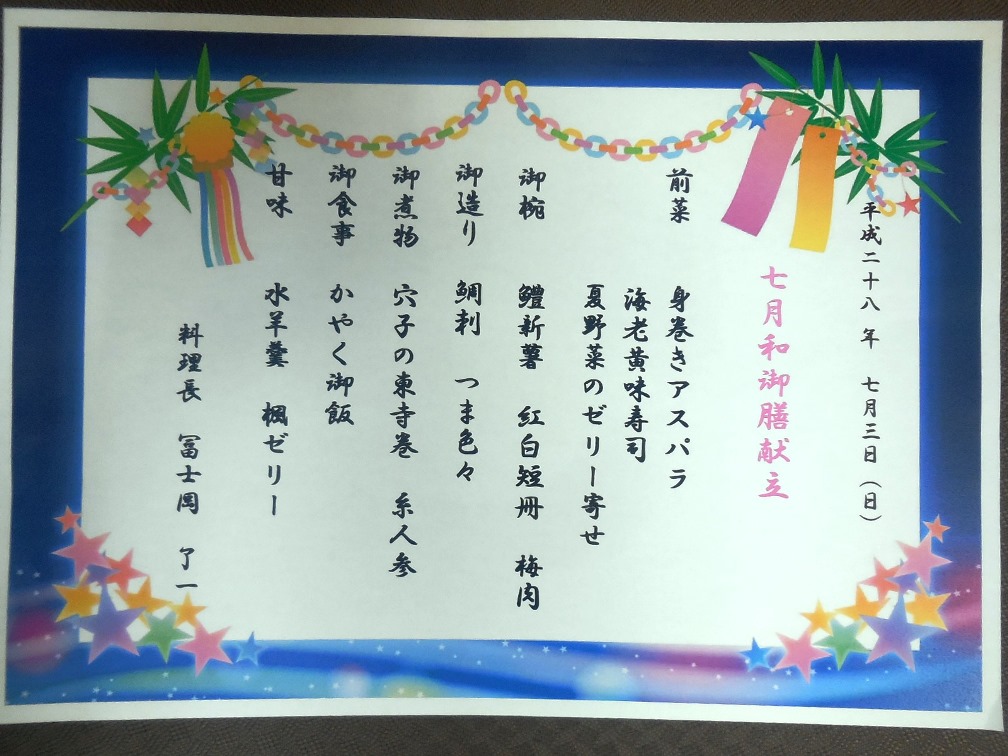 平成二十八年 七月三日（日）
七月和御膳献立
前菜 身巻きアスパラ
海老黄味寿司
夏野菜のゼリー寄せ
御椀 鱧新薯 紅白短冊 梅肉
御造り 鯛刺 つま色々
御煮物 穴子の東寺巻 糸人参
御食事 かやく御飯
甘味 水羊羹 楓ゼリー
料理長 冨士岡 了一